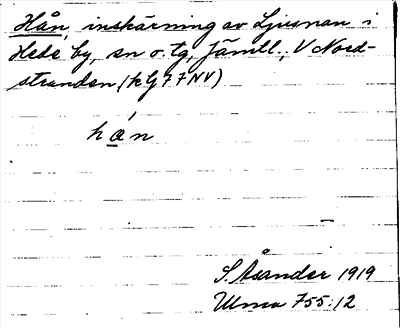 Hån, inskärning av Ljusnan i
Hede by, sn o. tg, Jämtl., V Nord-
stranden (kG 77 NV)
hån
S. Åsander 1919
Ulma 755:12